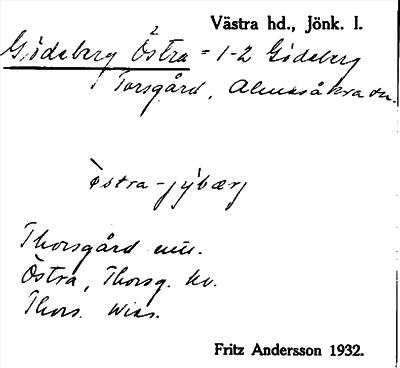 Västra hd., Jönk. l.
2
Gjödeberg Östra = 1-2 Gjödeberg
Torsgård, Almesåkra sn.
östra-jýbærj
Thorsgård
Östra, Thorsg. kv.
Thors.
Fritz Andersson 1932.